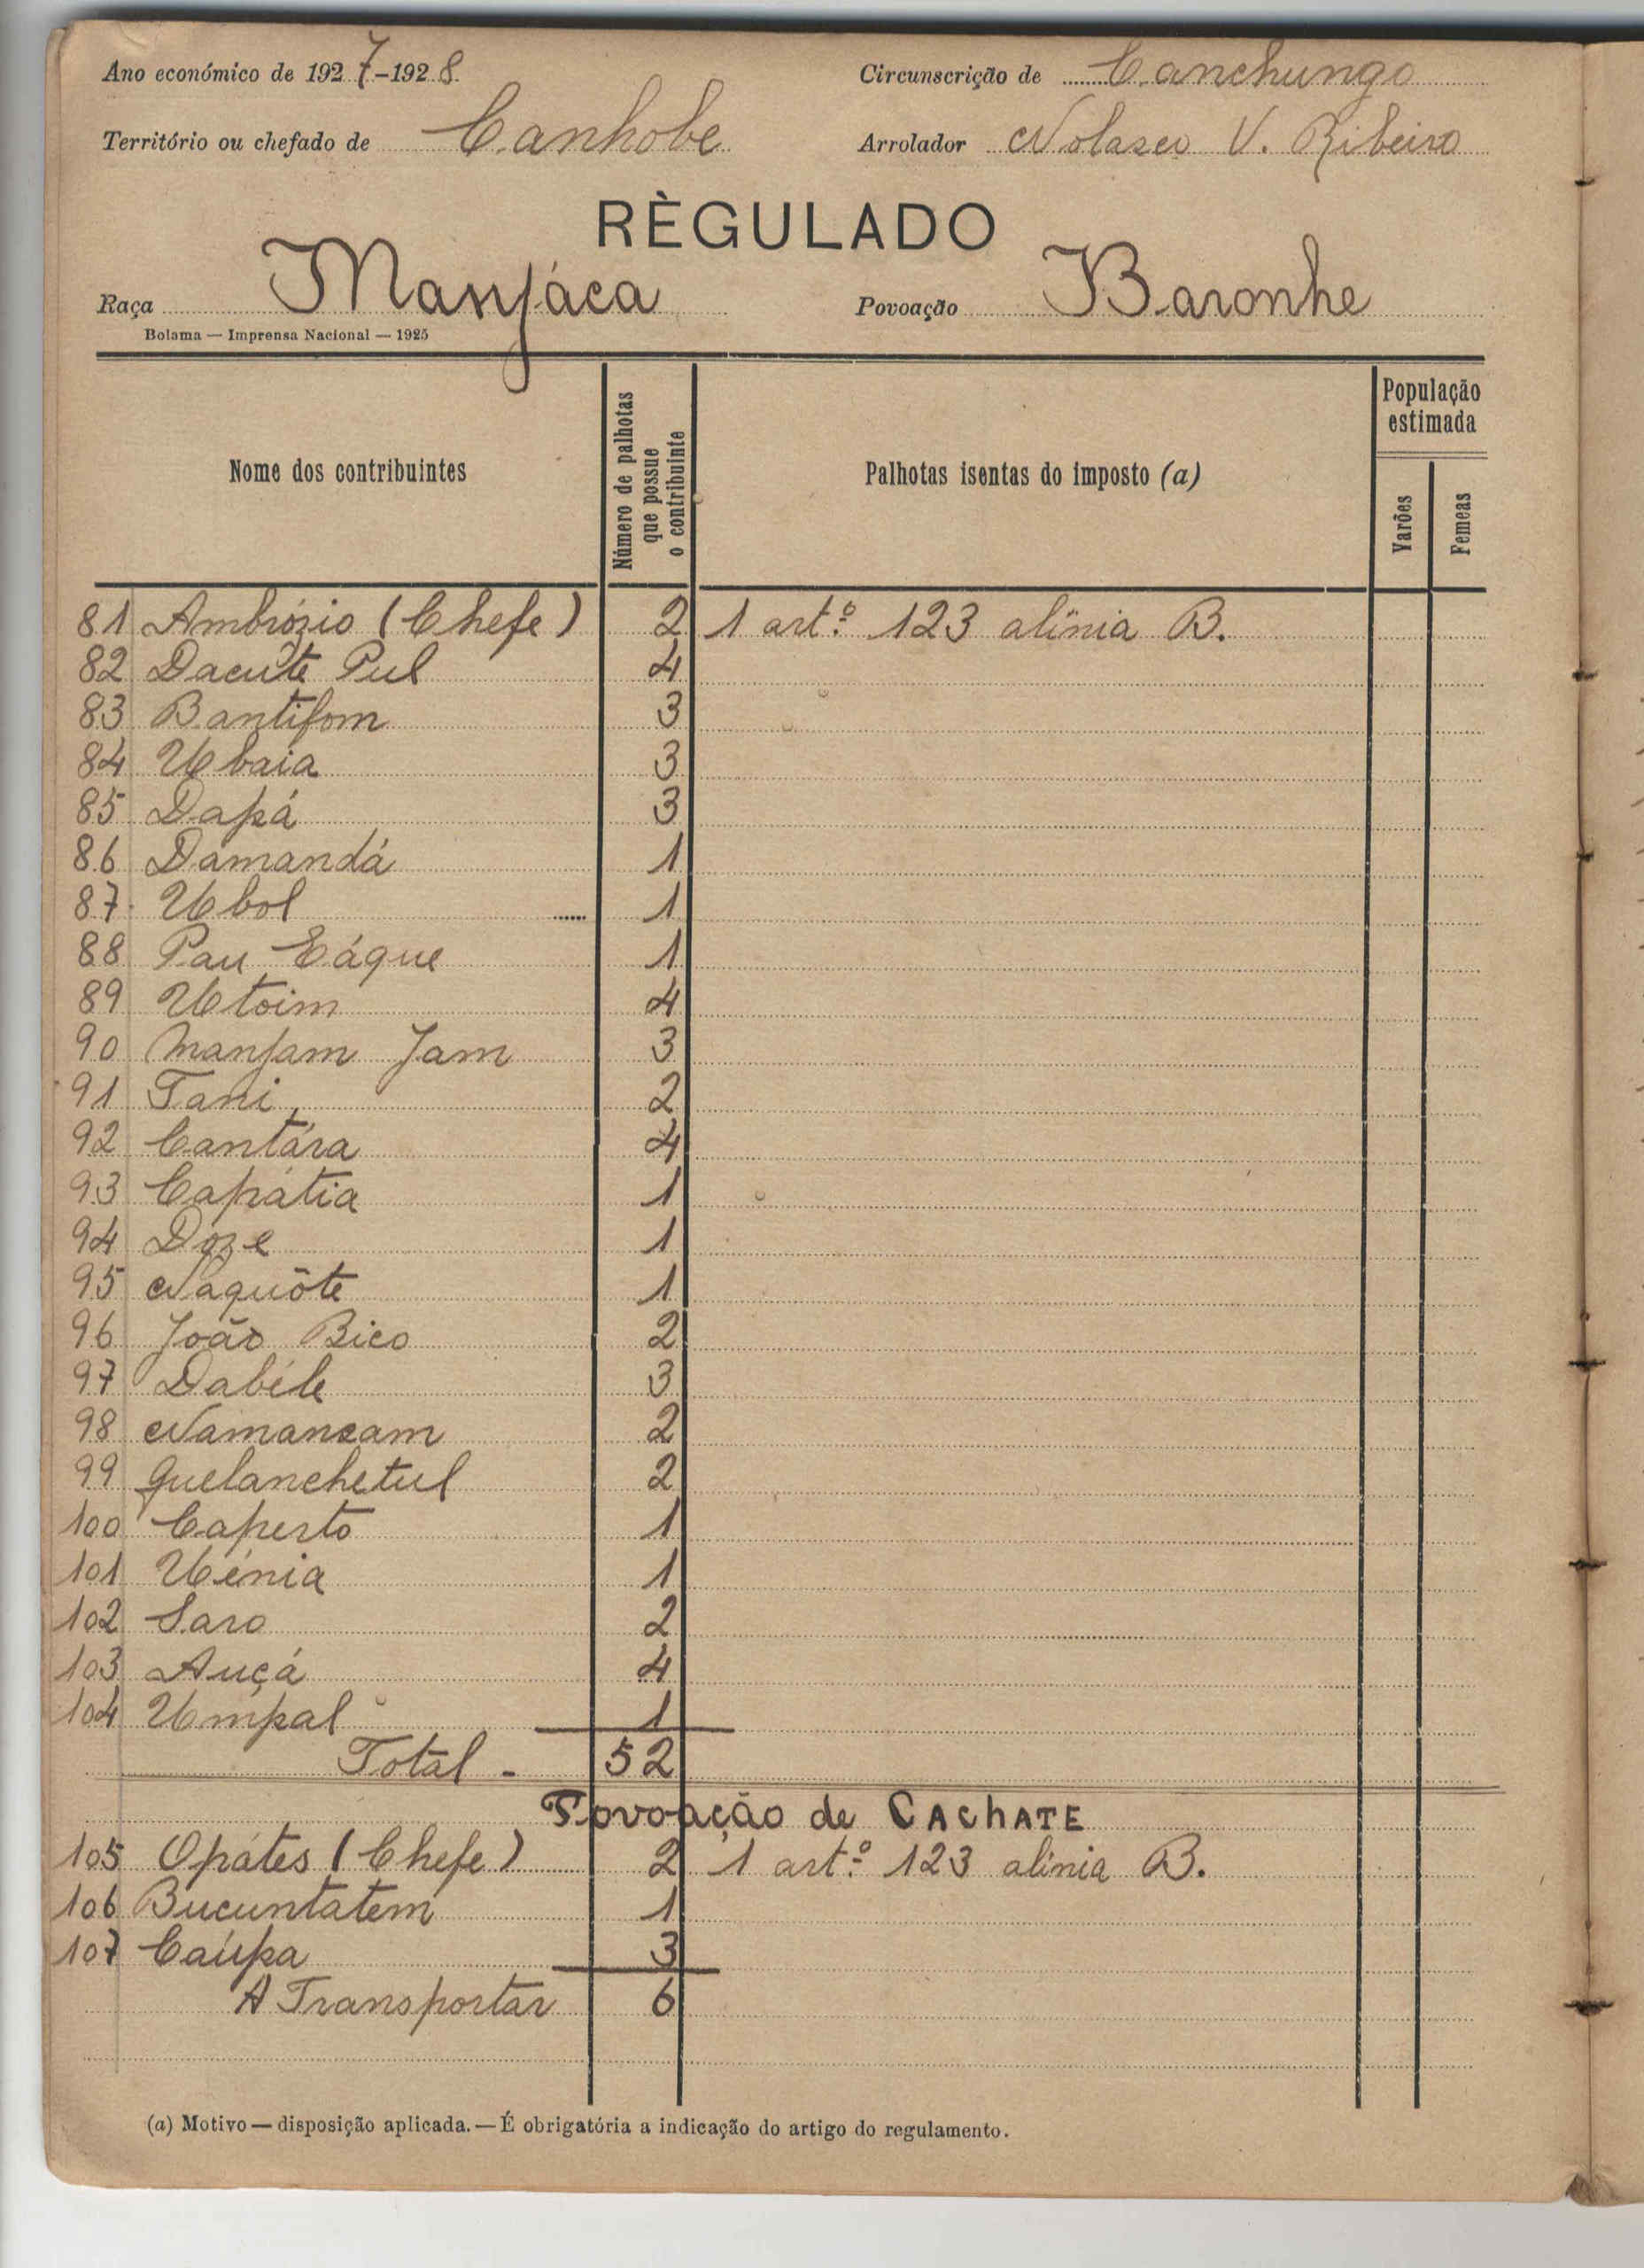 Ano económico de 1927-1928 Circunscrição de Canchungo
Território ou chefado de Canhobe Arrolador Nolasco V. Ribeiro
RÈGULADO
Raça Manjáca Povoação Baronhe
Bolama — Imprensa Nacional — 1925
Nome dos contribuintes Número de palhotas que possue o contribuinte Palhotas isentas do imposto (a) População estimada Varões Femeas
81 Ambrózio (Chefe) 2 1 art.º 123 alinia B.
82 Dacúte Pul 4
83 Bantifom 3
84 Ubaia 3
85 Dapá 3
86 Damandá 1
87 Ubol 1
88 Pau Cáque 1
89 Utoim 4
90 Manjam Jam 3
91 Tani 2
92 Cantára 4
93 Capátia 1
94 Doze 1
95 Naquôte 1
96 João Bico 2
97 Dabéle 3
98 Namancam 2
99 Quelanchetul 2
100 Caperto 1
101 Uénia 1
102 Saro 2
103 Auçá 4
104 Umpal 1
Total - 52
Povoação de CAChATE
105 Opátes (Chefe) 2 1 art.º 123 alinia B.
106 Bucuntatem 1
107 Caúpa 3
A Transportar 6
(a) Motivo — disposição aplicada. — É obrigatória a indicação do artigo do regulamento.